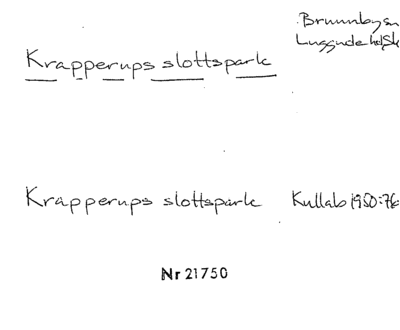 Krapperups slottspark
Brunnby sn
Luggude hd, Sk
Krapperups slottspark
Kullab 1950:76
Nr 21750